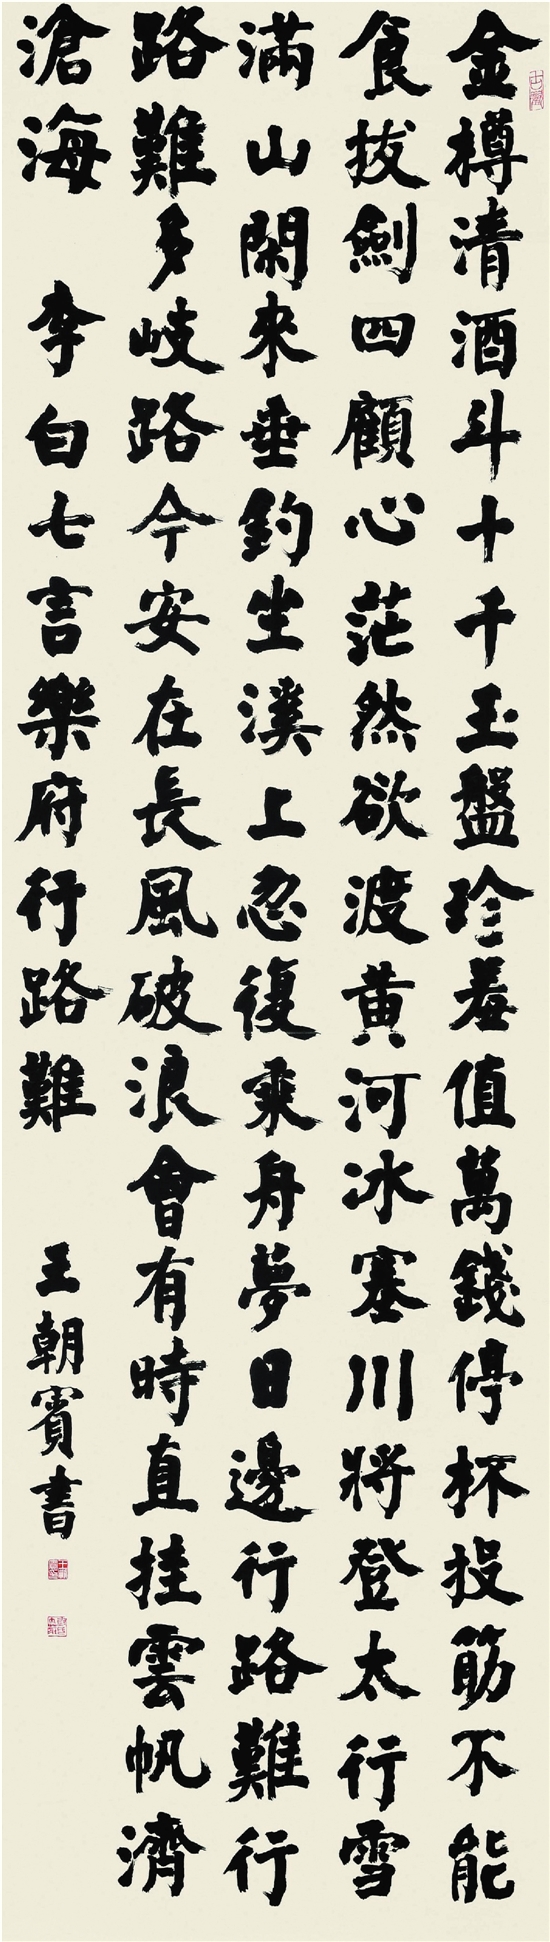 金樽清酒斗十千玉盤珍羞值萬錢停杯投筋不能
食拔劍四顧心茫然欲渡黄河冰塞川將登太行雪
滿山閑來垂釣坐溪上忽復乘舟夢日邊行路難行
路難多岐路今安在長風破浪會有時直挂雲帆濟
滄海 李白七言樂府行路難 王朝賓書